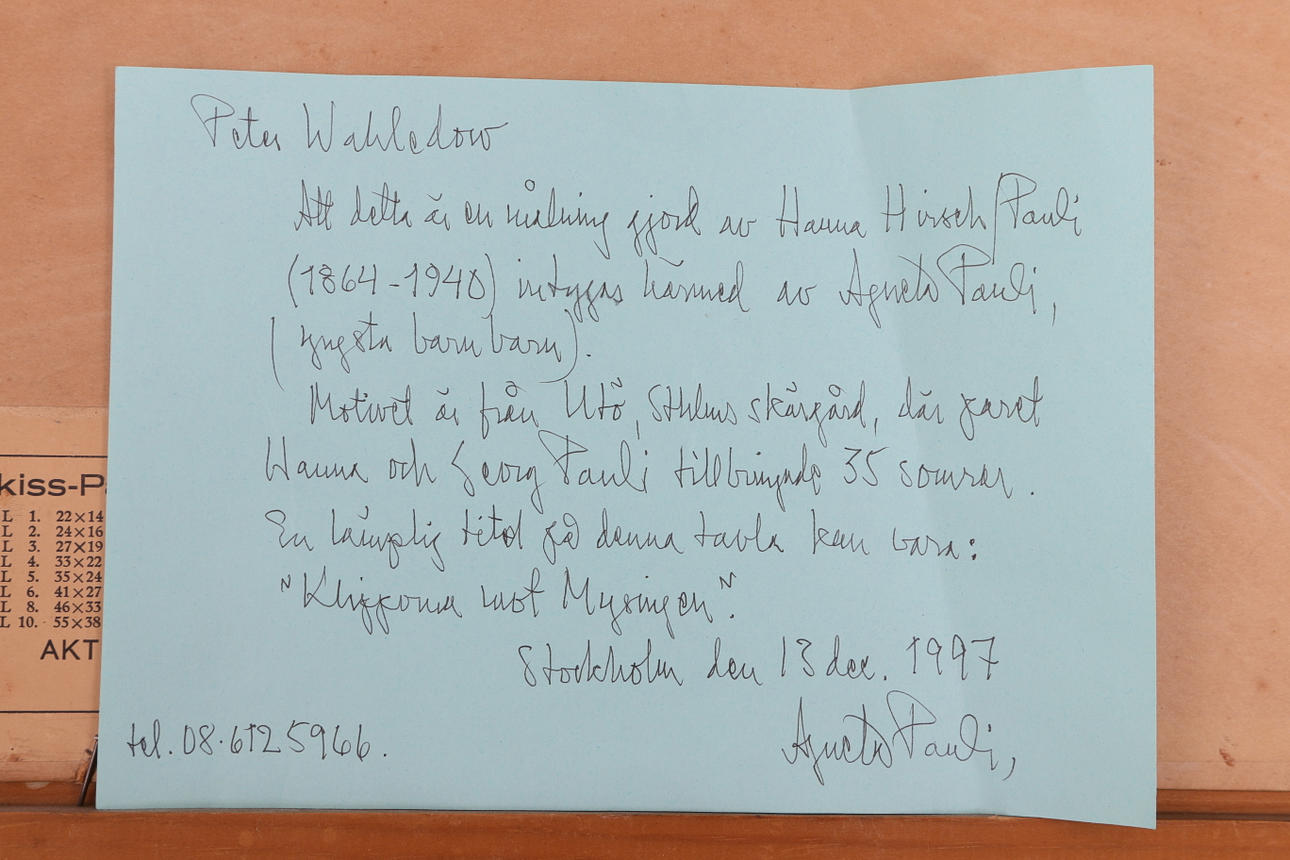 Peter Wahledow
Att detta är en målning gjord av Hanna Hirsch/Pauli
(1864-1940) intygas härmed av Agneta Pauli,
(yngsta barnbarn).
Motivet är från Utö, Sthlms skärgård, där paret
Hanna och Georg Pauli tillbringade 35 somrar.
En lämplig titel på denna tavla kan vara:
"Klipporna mot Mysingen".
Stockholm den 13 dec. 1997
Agneta Pauli,
tel. 08.6125966.
kiss-P
L 1. 22×14
L 2. 24×16
L 3. 27×19
L 4. 33×22
L 5. 35×24
L 6. 41×27
L 8. 46×33
L 10. 55×38
AKT